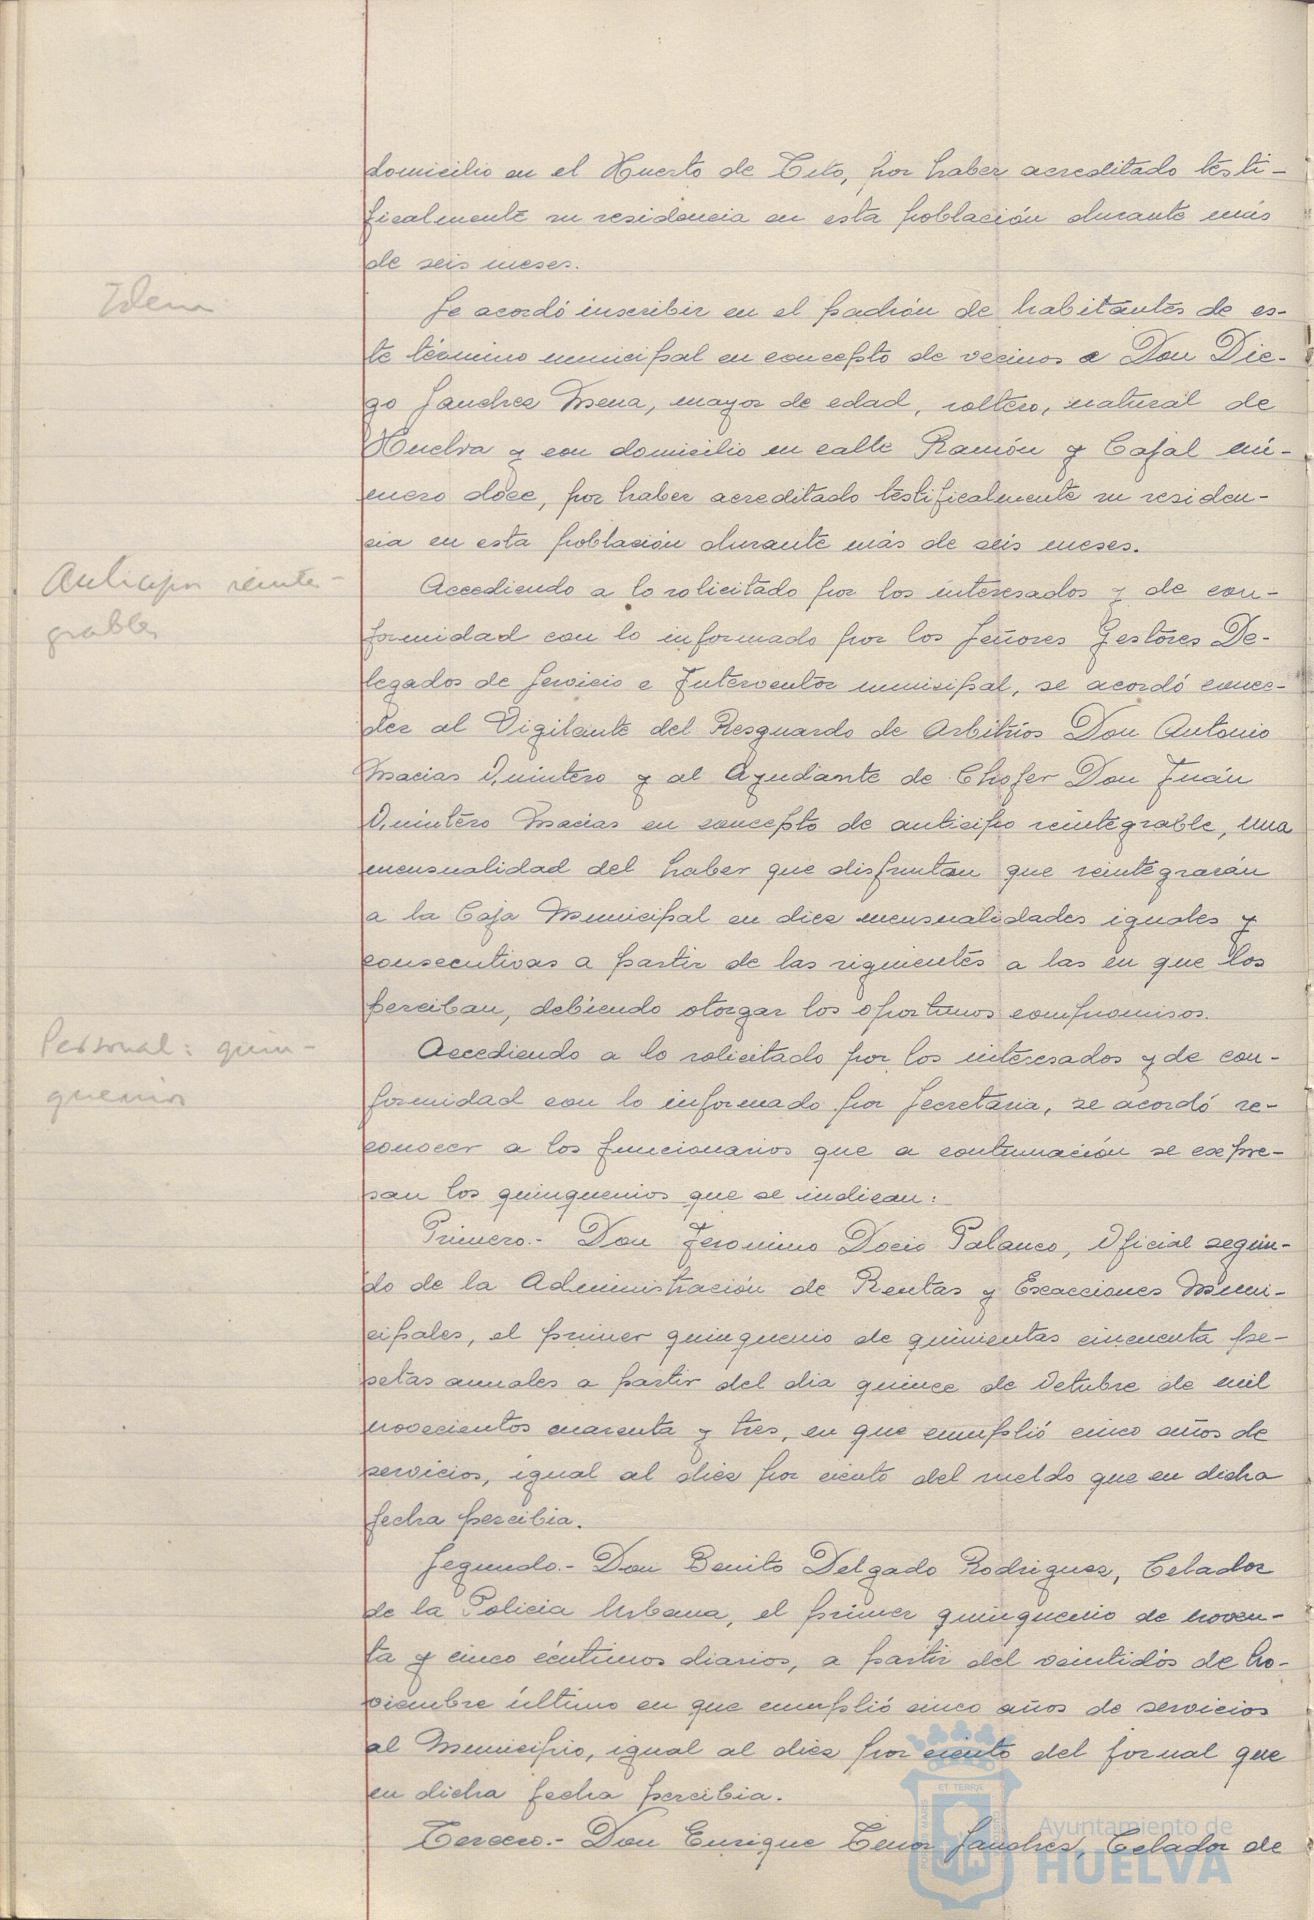 domicilio en el Huerto de Tito, por haber acreditado testi-
ficalmente su residencia en esta población durante más
de seis meses.
Idem
Se acordó inscribir en el padrón de habitantes de es-
te término municipal en concepto de vecinos a Don Die-
go Sanchez Mena, mayor de edad, soltero, natural de
Huelva y con domicilio en calle Ramón y Cajal nú-
mero doce, por haber acreditado testificalmente su residen-
cia en esta población durante más de seis meses.
Anticipos reinte-
grables
Accediendo a lo solicitado por los interesados y de con-
formidad con lo informado por los Señores Gestores De-
legados de Servicio e Interventor municipal, se acordó conce-
der al Vigilante del Resguardo de Arbitrios Don Antonio
Macias Quintero y al Ayudante de Chofer Don Juán
Quintero Macias en concepto de anticipo reintegrable, una
mensualidad del haber que disfrutan que reintegrarán
a la Caja Municipal en diez mensualidades iguales y
consecutivas a partir de las siguientes a las en que los
perciban, debiendo otorgar los oportunos compromisos.
Personal: quin-
quenios
Accediendo a lo solicitado por los interesados y de con-
formidad con lo informado por Secretaria, se acordó re-
conocer a los funcionarios que a continuación se expre-
san los quinquenios que se indican:
Primero.- Don Jeronimo Docio Palanco, Oficial segun-
do de la Administración de Rentas y Exacciones Muni-
cipales, el primer quinquenio de quinientas cincuenta pe-
setas anuales a partir del dia quince de Octubre de mil
novecientos cuarenta y tres, en que cumplió cinco años de
servicios, igual al diez por ciento del sueldo que en dicha
fecha percibia.
Segundo.- Don Benito Delgado Rodriguez, Celador
de la Policia Urbana, el primer quinquenio de noven-
ta y cinco céntimos diarios, a partir del veintidós de No-
viembre último en que cumplió cinco años de servicios
al Municipio, igual al diez por ciento del jornal que
en dicha fecha percibia.
Tercero.- Don Enrique Tenor Sanchez, Celador de
ET TERRÆ
Ayuntamiento de
HUELVA